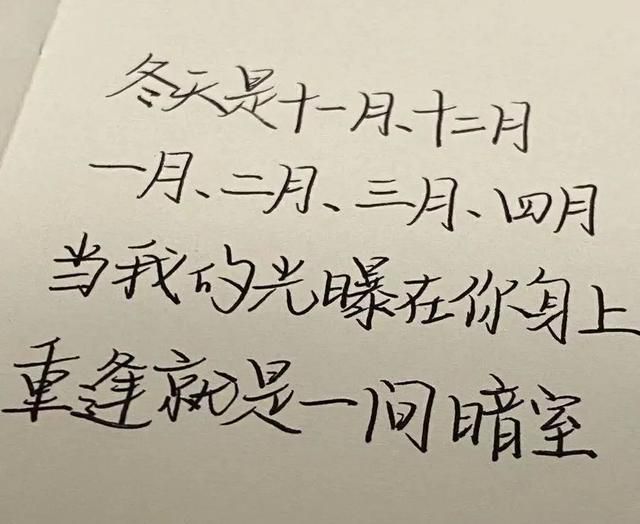 冬天是十一月、十二月
一月、二月、三月、四月
当我的光曝在你身上
重逢就是一间暗室